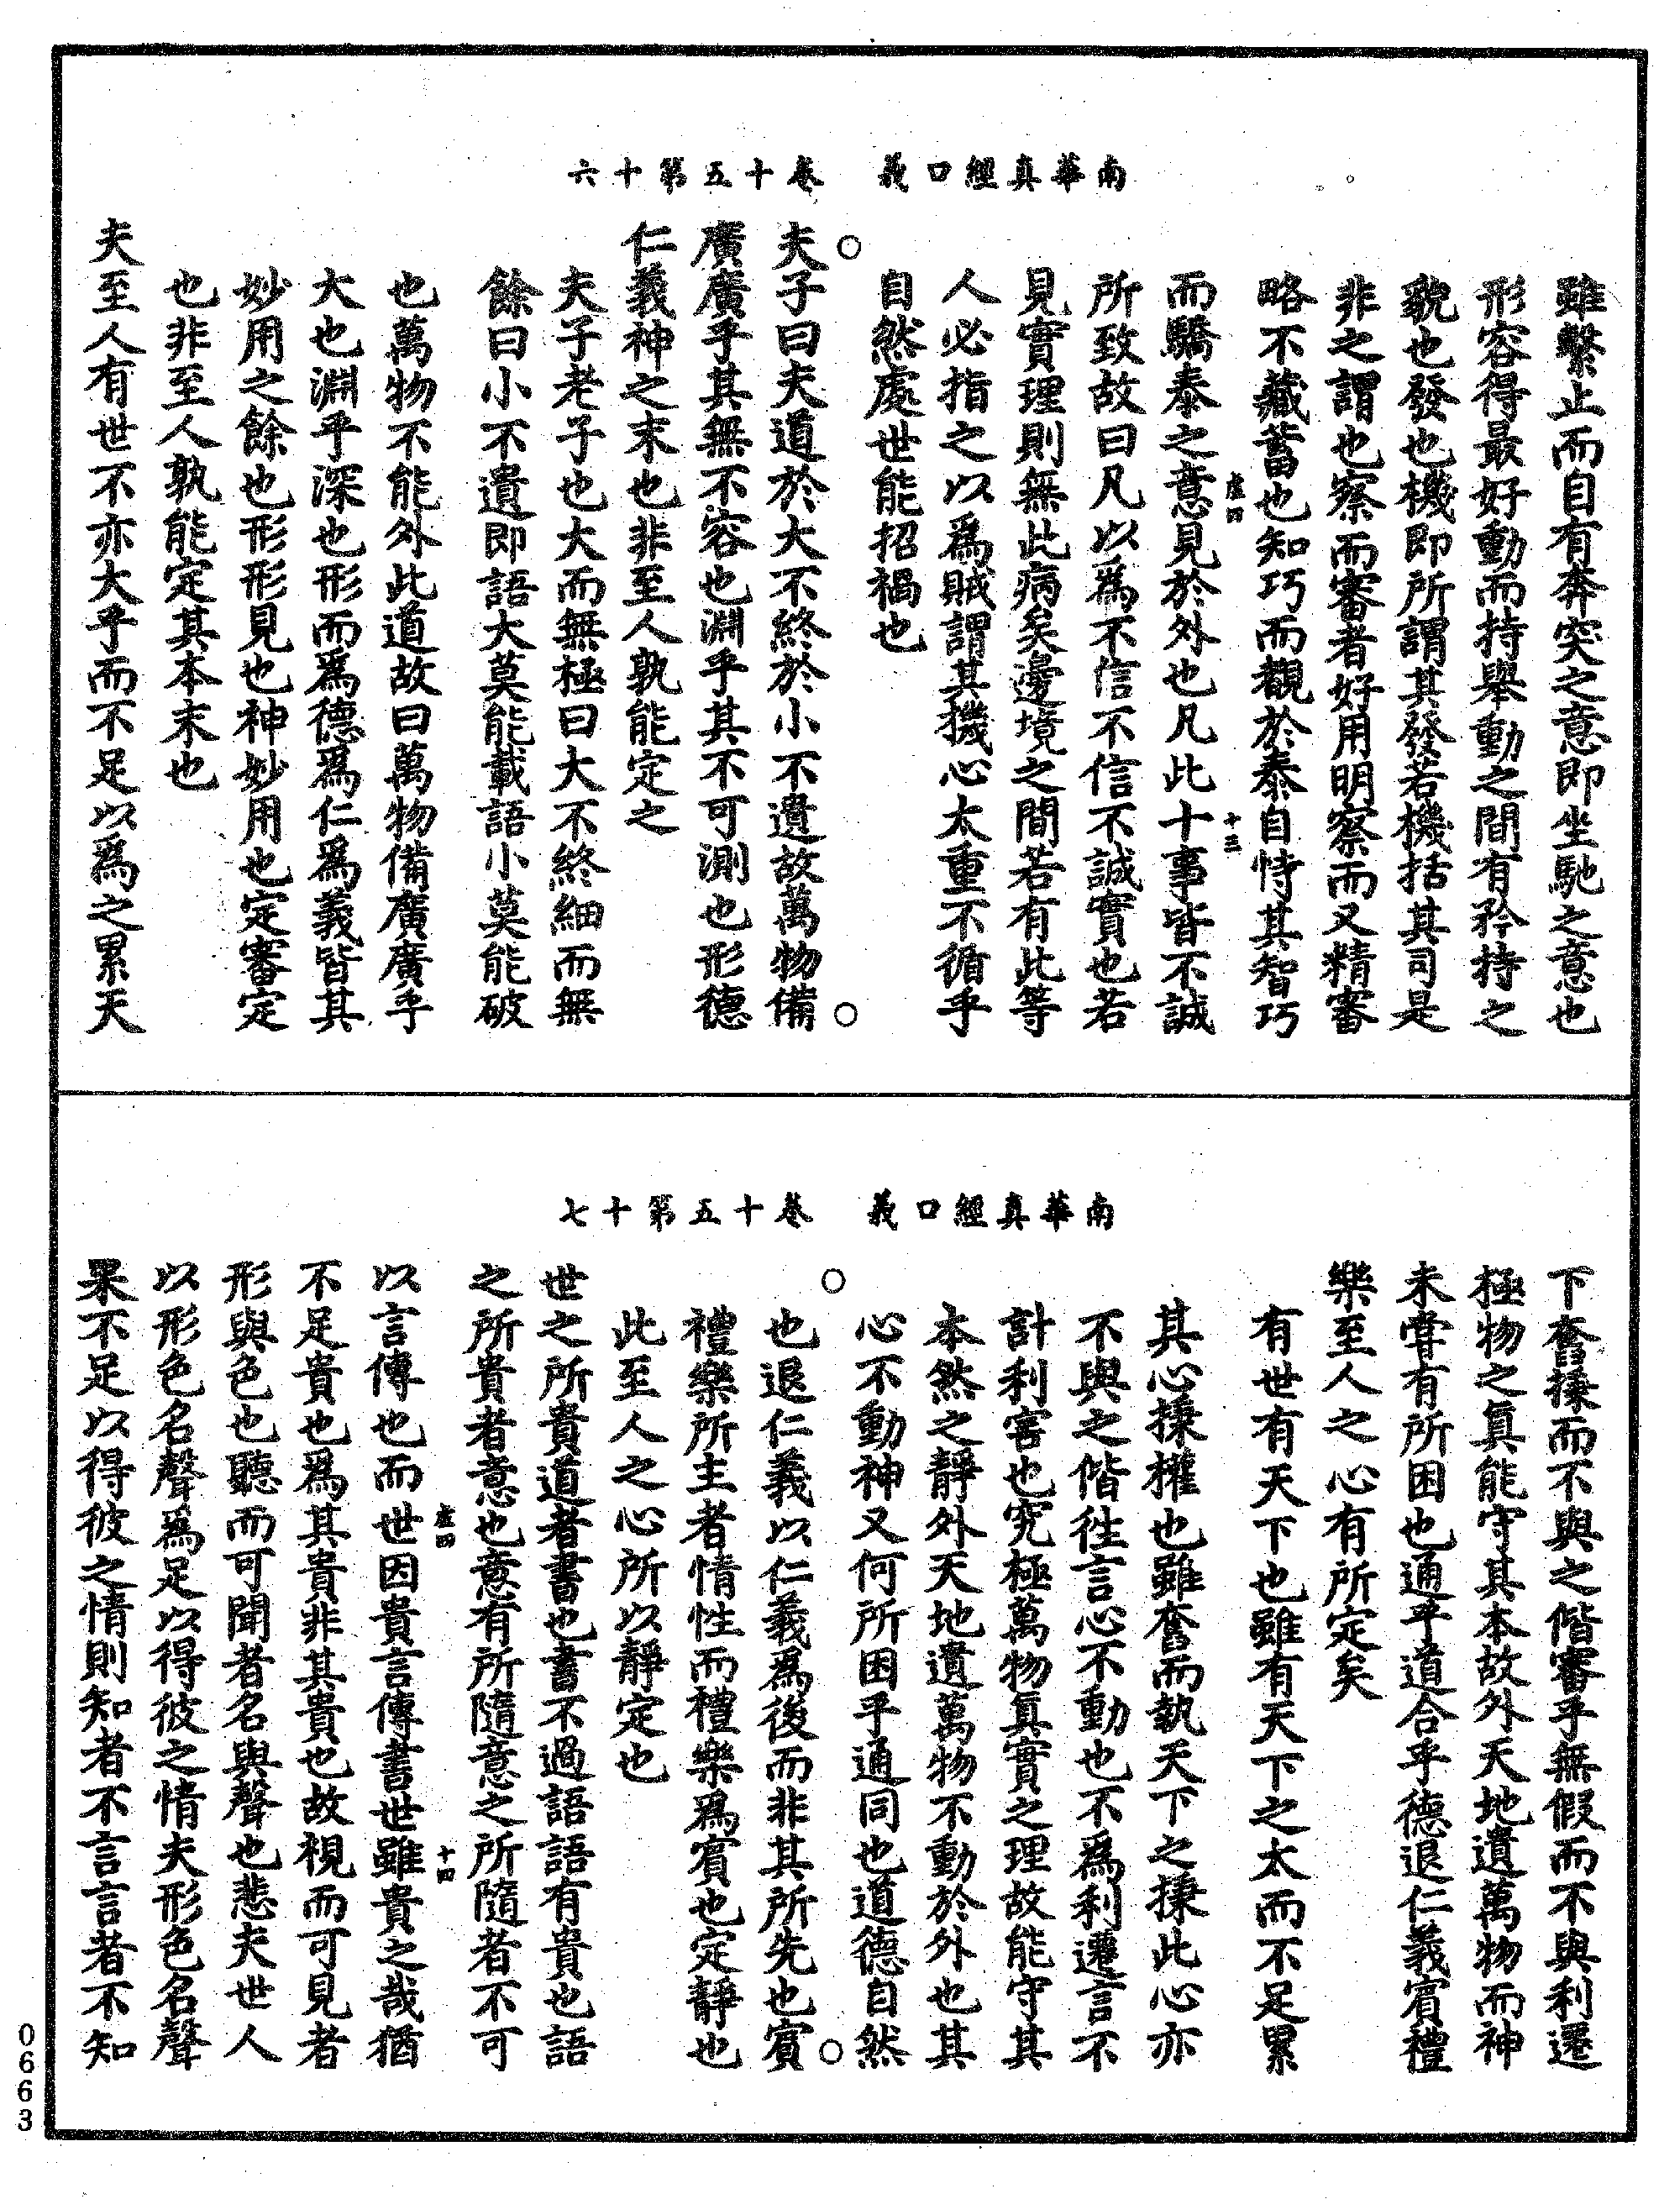 南華真經口義　卷十五第十六
雖繫止而自有奔突之意即坐馳之意也
形容得最好動而持舉動之間有矜持之
貌也發也機即所謂其發若機括其司是
非之謂也察而審者好用明察而又精審
略不藏蓄也知巧而覩於泰自恃其智巧
而驕泰之意見於外也凡此十事皆不誠
虛四
十三
所致故曰凡以爲不信不信不誠實也若
見實理則無此病矣邊境之間若有此等
人必指之以爲賊謂其機心太重不循乎
自然處世能招禍也
夫子曰夫道於大不終於小不遺故萬物備
廣廣乎其無不容也淵乎其不可測也形德
仁義神之末也非至人孰能定之
夫子老子也大而無極曰大不終細而無
餘曰小不遺即語大莫能載語小莫能破
也萬物不能外此道故曰萬物備廣廣乎
大也淵乎深也形而爲德爲仁爲義皆其
妙用之餘也形形見也神妙用也定審定
也非至人孰能定其本末也
夫至人有世不亦大乎而不足以爲之累天
南華真經口義　卷十五第十七
下奮揉而不與之偕審乎無假而不與利遷
極物之真能守其本故外天地遺萬物而神
未嘗有所困也通乎道合乎德退仁義賓禮
樂至人之心有所定矣
有世有天下也雖有天下之太而不足累
其心揉權也雖奮而執天下之揉此心亦
不與之偕徃言心不動也不爲利遷言不
計利害也究極萬物真實之理故能守其
本然之靜外天地遺萬物不動於外也其
心不動神又何所困乎通同也道德自然
也退仁義以仁義爲後而非其所先也賓
禮樂所主者情性而禮樂爲賓也定靜也
此至人之心所以靜定也
世之所貴道者書也書不過語語有貴也語
之所貴者意也意有所隨意之所隨者不可
以言傳也而世因貴言傳書世雖貴之哉猶
虛四
十四
不足貴也爲其貴非其貴也故視而可見者
形與色也聽而可聞者名與聲也悲夫世人
以形色名聲爲足以得彼之情夫形色名聲
果不足以得彼之情則知者不言言者不知
0663